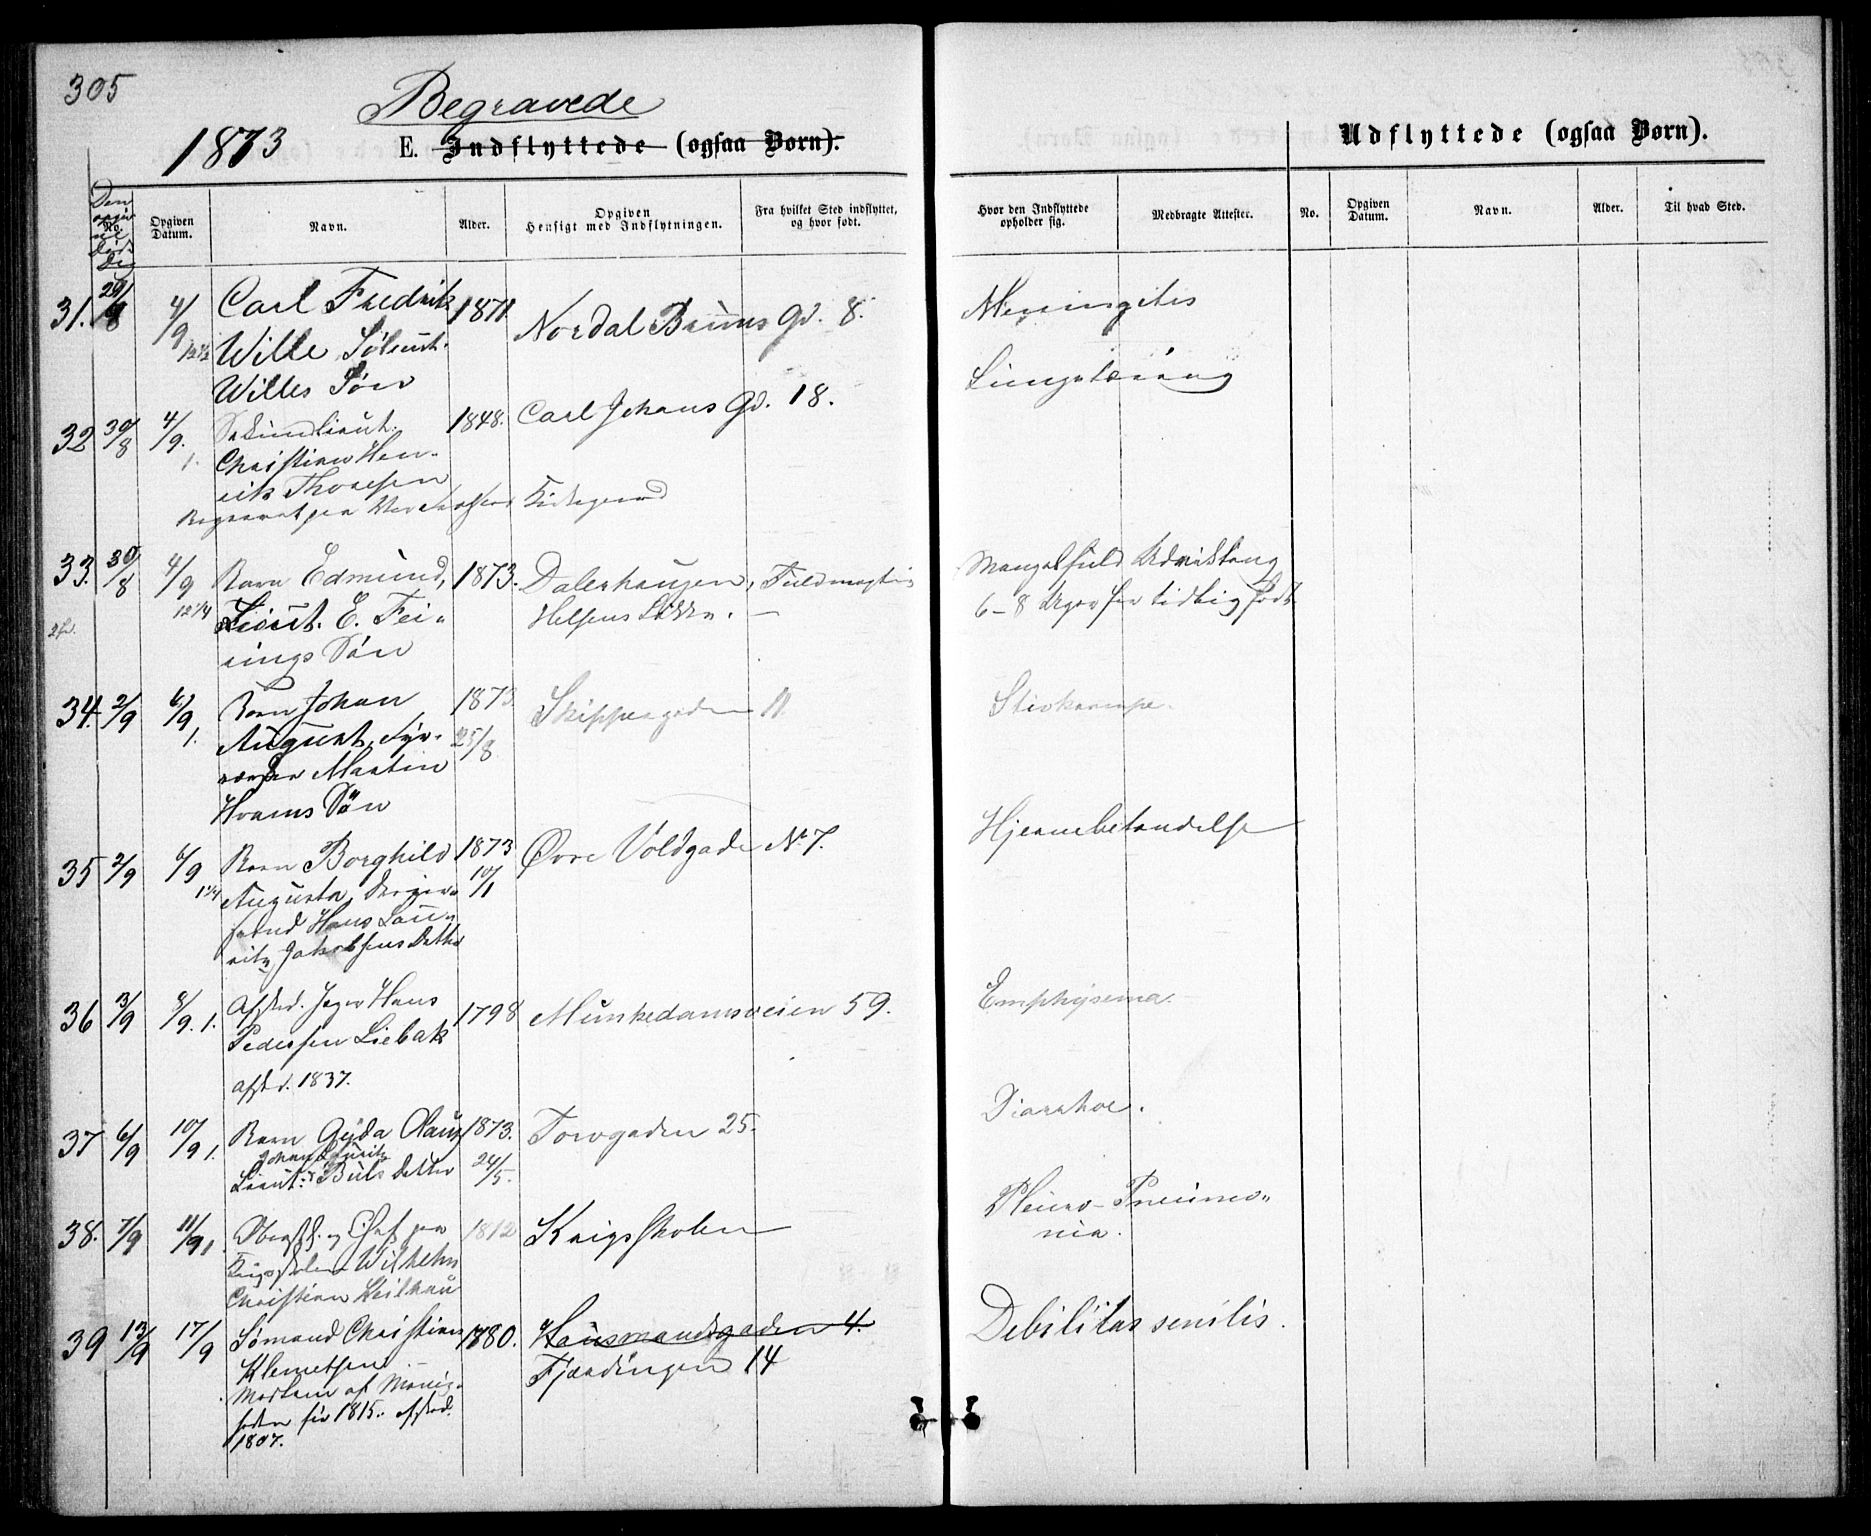 305
Begravede
1873
E. Indflyttede (ogsaa Børn).
Udflyttede (ogsaa Børn).
Den
No.
Opgiven Datum.
Navn.
Alder.
Opgiven Hensigt med Indflytningen.
Fra hvilket Sted indflyttet, og hvor født.
Hvor den Indflyttede opholder sig.
Medbragte Attester.
No.
Opgiven Datum.
Navn.
Alder.
Til hvad Sted.
31. 29/8 4/9 Carl Fredrik 1871. Nordal Bruns Gd. 8. Meningitis
12½ Wille
Willes Søn
32 30/8 4/9. Sekundlieut. 1848. Carl Johans Gd. 18.
1. Christian Hen-
rik Thoresen
Begravet paa Kirkegaard
33. 30/8 4/9 Barn Edmund, 1873. Fuldmægtig Mangelfuld Udvikling
12¼ Lieut. E. Fei- 6-8 Uger for tidlig født
rings Søn
34. 2/9 6/9 Barn Johan 1873 Skippergaden 11 Stivkrampe.
1. August, 25/8
Martin
Hvams Søn
35 2/9 6/9 Barn Borghild 1873 Øvre Voldgade No 7. Hjernebetændelse
1¼ Augusta, 10/1
Hans Lau-
ritz Jakobsens Datter
36 3/9 8/9. 1. Afsked. Jæger Hans 1798 Munkedamsveien 59. Emphysema.
Pedersen Liebak
afsked. 1837.
37 6/9 10/9 1. Barn Gyda 1873. Torvgaden 25. Diarrhoe.
Johan Lauritz
Lieut: Buls Datter 24/5.
38. 7/9 11/9 1. Oberstl. og Chef paa 1812 Krigsskolen Pleuro-Pneumo-
Krigsskolen Wilhelm nia.
Christian Keilhau
39 13/9 17/9 Sømand Christian 1780. Hausmandsgaden 4. Debilitas senilis.
Klemetsen Fjerdingen 14
før 1815. afsked.
1807.